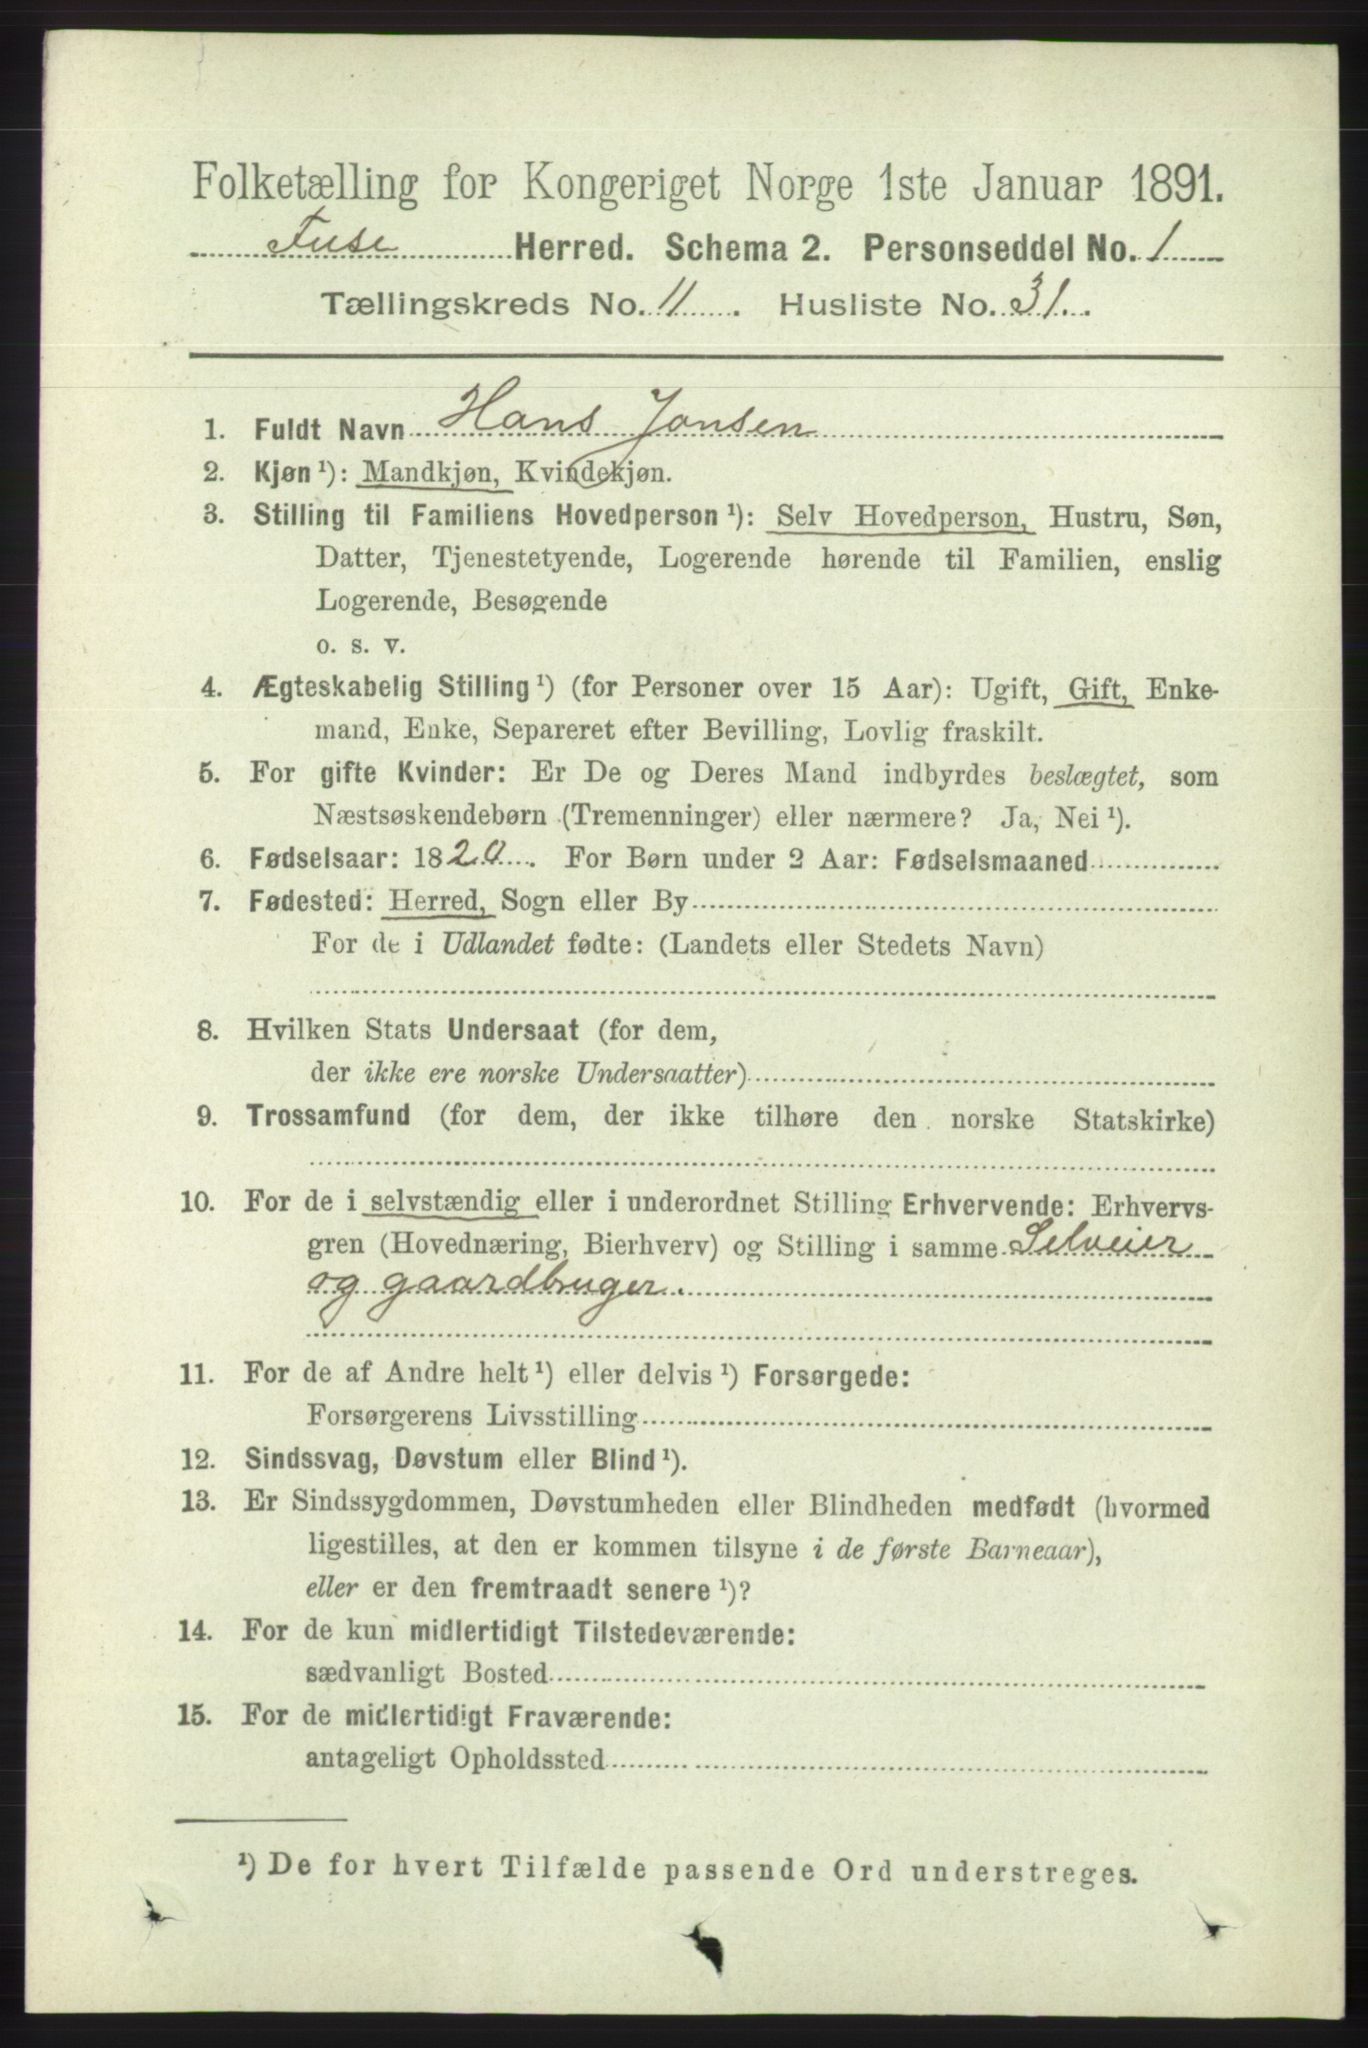 Folketælling for Kongeriget Norge 1ste Januar 1891.
Fuse Herred. Schema 2. Personseddel No. 1
Tællingskreds No. 11. Husliste No. 31.
1. Fuldt Navn Hans Jonsen
2. Kjøn ¹): Mandkjøn, Kvindekjøn.
3. Stilling til Familiens Hovedperson ¹): Selv Hovedperson, Hustru, Søn,
Datter, Tjenestetyende, Logerende hørende til Familien, enslig
Logerende, Besøgende
o. s. v.
4. Ægteskabelig Stilling ¹) (for Personer over 15 Aar): Ugift, Gift, Enke-
mand, Enke, Separeret efter Bevilling, Lovlig fraskilt.
5. For gifte Kvinder: Er De og Deres Mand indbyrdes beslægtet, som
Næstsøskendebørn (Tremenninger) eller nærmere? Ja, Nei ¹).
6. Fødselsaar: 1820. For Børn under 2 Aar: Fødselsmaaned
7. Fødested: Herred, Sogn eller By
For de i Udlandet fødte: (Landets eller Stedets Navn)
8. Hvilken Stats Undersaat (for dem,
der ikke ere norske Undersaatter)
9. Trossamfund (for dem, der ikke tilhøre den norske Statskirke)
10. For de i selvstændig eller i underordnet Stilling Erhvervende: Erhvervs-
gren (Hovednæring, Bierhverv) og Stilling i samme Selveier
og gaardbruger.
11. For de af Andre helt ¹) eller delvis ¹) Forsørgede:
Forsørgerens Livsstilling
12. Sindssvag, Døvstum eller Blind ¹).
13. Er Sindssygdommen, Døvstumheden eller Blindheden medfødt (hvormed
ligestilles, at den er kommen tilsyne i de første Barneaar),
eller er den fremtraadt senere ¹)?
14. For de kun midlertidigt Tilstedeværende:
sædvanligt Bosted
15. For de midlertidigt Fraværende:
antageligt Opholdssted
¹) De for hvert Tilfælde passende Ord understreges.